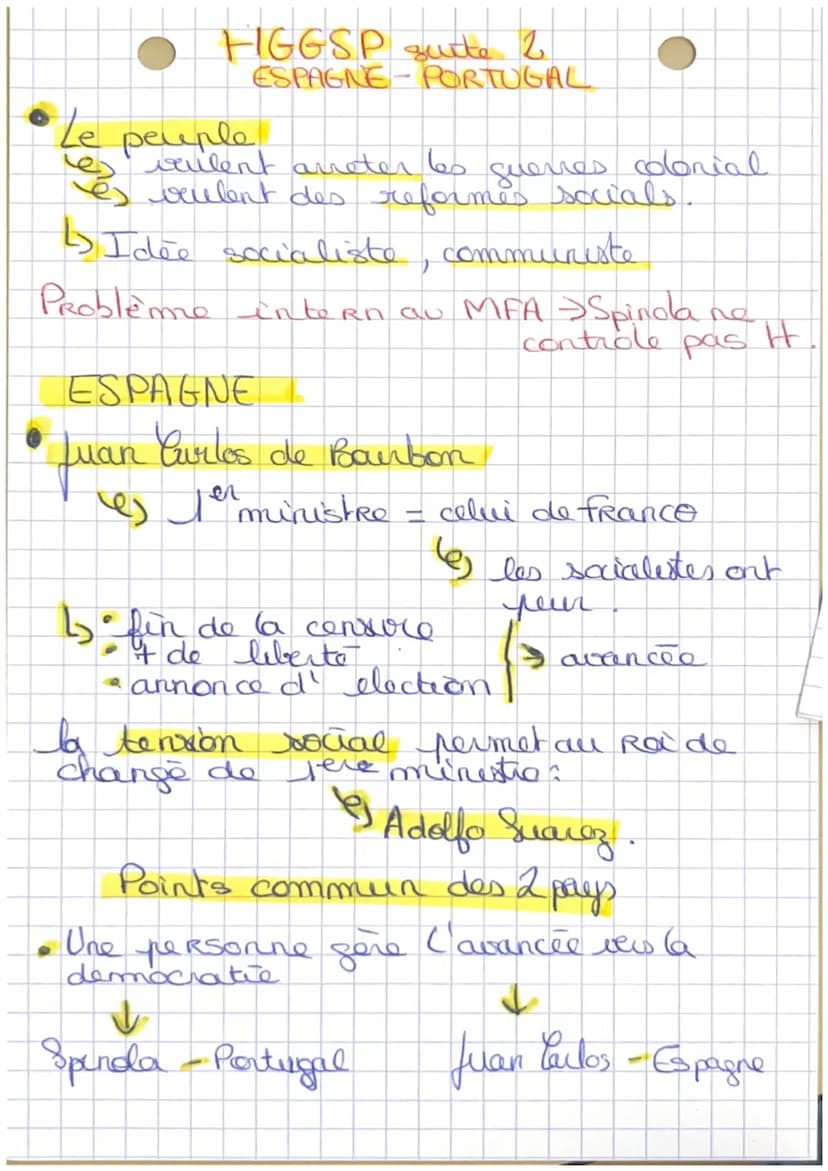 HGGSP suite 2
ESPAGNE - PORTUGAL
• Le peuple
↳ veulent arreter les guerres colonial
↳ veulent des reformes socials.
↳ Idée socialiste, communiste
Problème intern au MFA → Spinola ne
contrôle pas tt.
ESPAGNE
• Juan Carlos de Bourbon
↳ 1er ministre = celui de france
↳ les socialistes ont
peur.
↳ • fin de la censure
• + de liberté → avancée
• annonce d' election
la tension social permet au Roi de
changé de 1ere ministre :
↳ Adolfo Suarez.
Points commun des 2 pays
• Une personne gère l'avancée vers la
democratie
↓ ↓
Spinola - Portugal Juan Carlos - Espagne